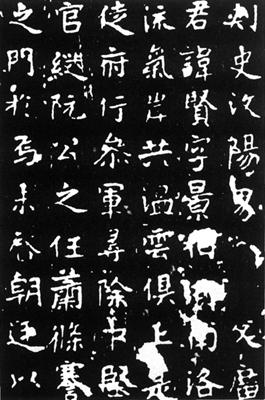 史汝陽男
君諱賢字景南洛
流氣岸共温雲俱上
徒府行參軍尋除中堅
官縱阮公之任蕭條謇
之門於焉未啓朝廷以